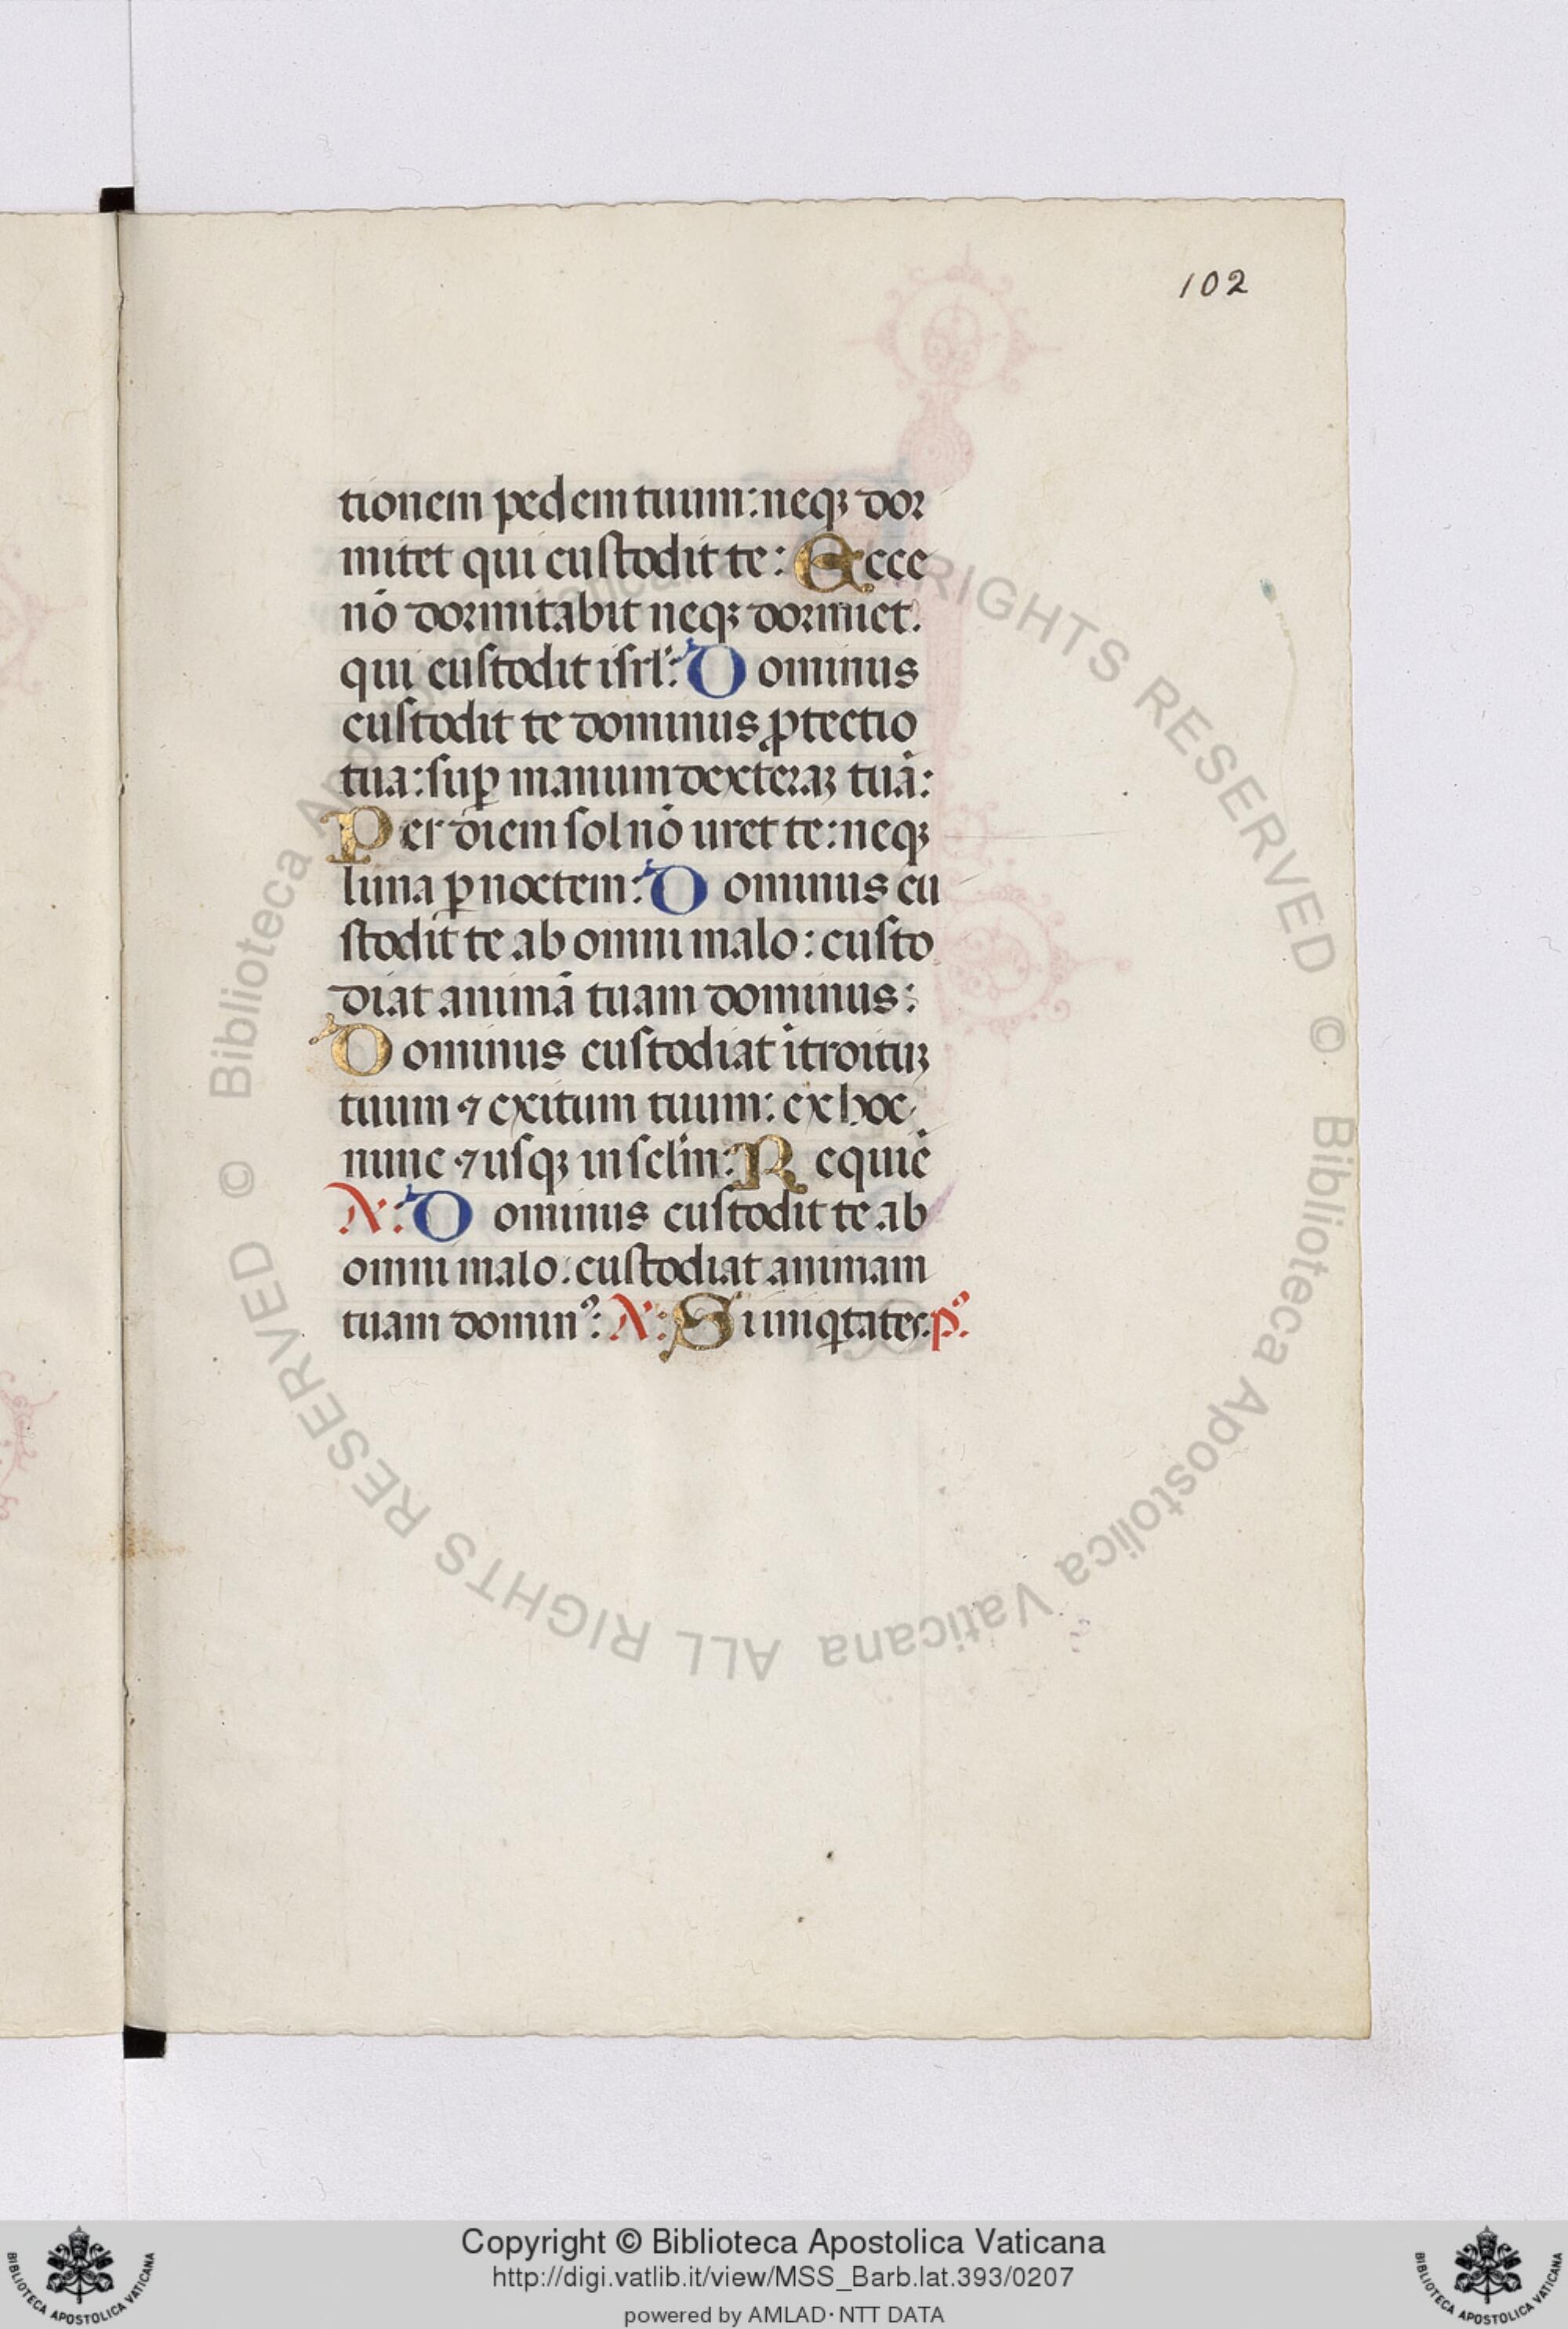 102
tionem pedem tuum: neqꝫ dor
mitet qui custodit te: Ecce
nō dormitabit neqꝫ dormiet.
qui custodit isrl̄: Dominus
custodit te dominus ꝓtectio
tua: suꝑ manum dexteraꝫ tuā:
Per diem sol nō uret te: neqꝫ
luna ꝑ noctem: Dominus cu
stodit te ab omni malo: custo
diat animā tuam dominus:
Dominus custodiat ītroituꝫ
tuum ⁊ exitum tuum: ex hoc
nunc ⁊ usqꝫ in sclm̄: Requiē
A: Dominus custodit te ab
omni malo: custodiat animam
tuam dominꝰ: A: Si iniqͥtates: pꝰ.
© Biblioteca Apostolica Vaticana ALL RIGHTS RESERVED © Biblioteca Apostolica Vaticana ALL RIGHTS RESERVED
BIBLIOTECA APOSTOLICA VATICANA
Copyright © Biblioteca Apostolica Vaticana
http://digi.vatlib.it/view/MSS_Barb.lat.393/0207
powered by AMLAD · NTT DATA
BIBLIOTECA APOSTOLICA VATICANA